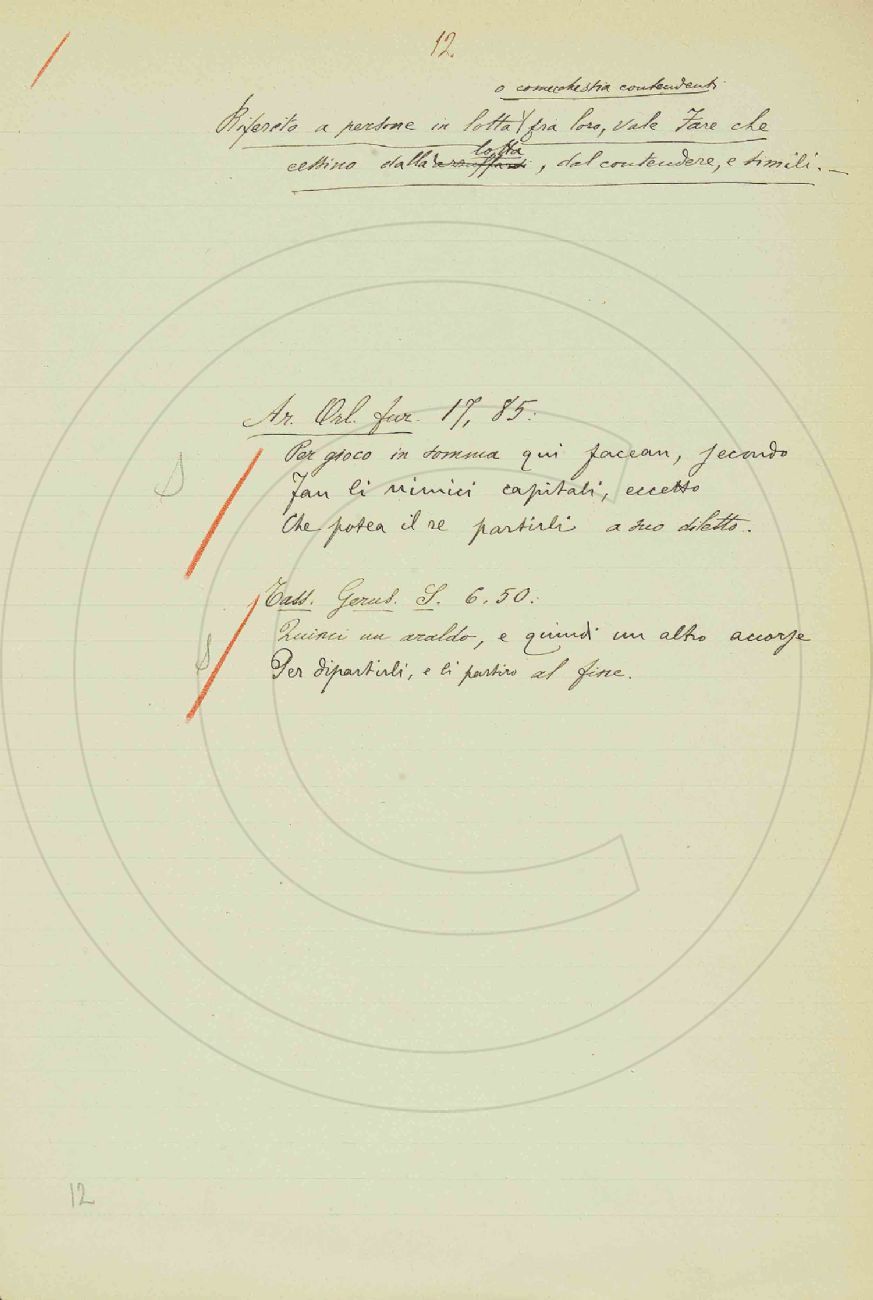 12
o comechessia contendenti
Riferito a persone in lotta fra loro, vale Fare che
cessino dalla lotta, dal contendere, e simili. —
Ar. Orl. fur. 17, 85:
Per gioco in somma qui facean, secondo
Fan li nimici capitali, eccetto
Che potea il re partirli a suo diletto.
S
Tass. Gerus. S. 6. 50:
Quinci un araldo, e quindi un altro accorse
Per dipartirli, e li partiro al fine.
S
12